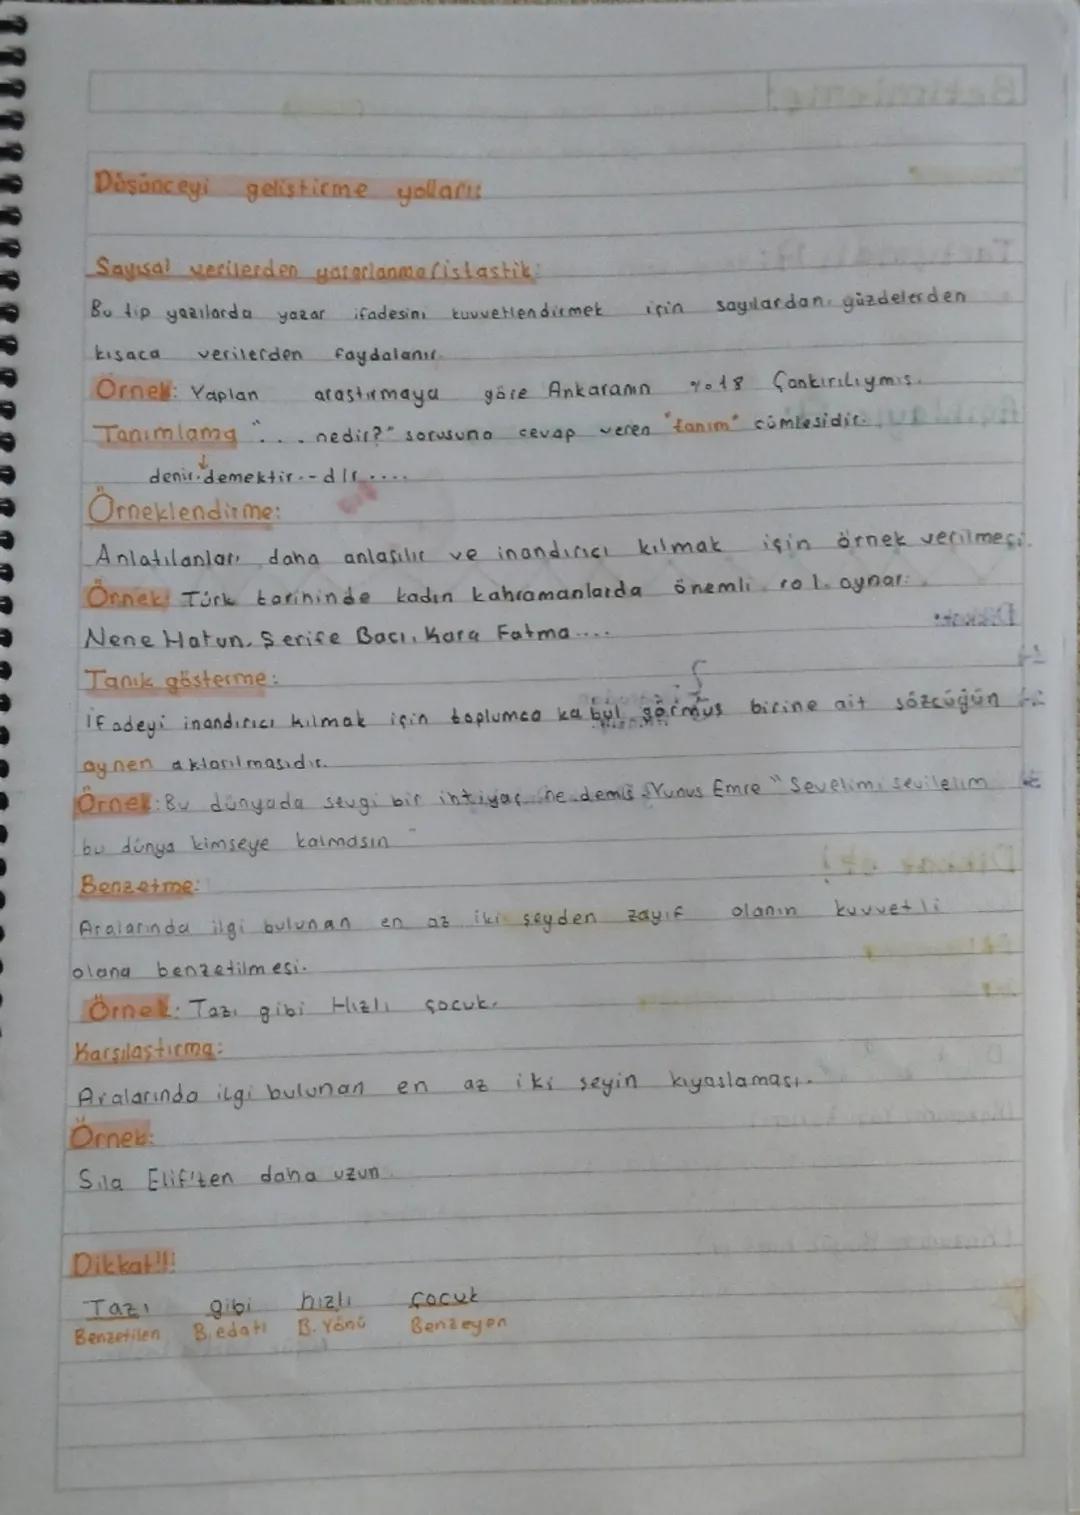 Düşünceyi geliştirme yolları:
Sayısal verilerden yararlanma (istastik:
Bu tip yazılarda yazar ifadesini kuvvetlendirmek için sayılardan, yüzdelerden
kısaca verilerden faydalanır.
Örnek: Yaplan araştırmaya göre Ankaranın %18 Çankırılıymış.
Tanımlama "... nedir?" sorusuna cevap veren "tanım" cümlesidir.
↓
denir. demektir. -dır....
Örneklendirme:
Anlatılanları daha anlaşılır ve inandırıcı kılmak için örnek verilmesi.
Örnek: Türk tarihinde kadın kahramanlarda önemli rol oynar:
Nene Hatun, Şerife Bacı, Kara Fatma....
Tanık gösterme:
İfadeyi inandırıcı kılmak için toplumca kabul görmüş birine ait sözcüğün
aynen aktarılmasıdır.
Örnek: Bu dünyada sevgi bir ihtiyaç ne demiş Yunus Emre "Sevelim, sevilelim
bu dünya kimseye kalmasın"
Benzetme:
Aralarında ilgi bulunan en az iki şeyden zayıf olanın kuvvetli
olana benzetilmesi.
Örnek: Tazı gibi Hızlı çocuk.
Karşılaştırma:
Aralarında ilgi bulunan en az iki şeyin kıyaslaması.
Örnek:
Sıla Elif'ten daha uzun.
Dikkat!!!
Tazı gibi hızlı çocuk
Benzetilen B. edatı B. Yönü Benzeyen